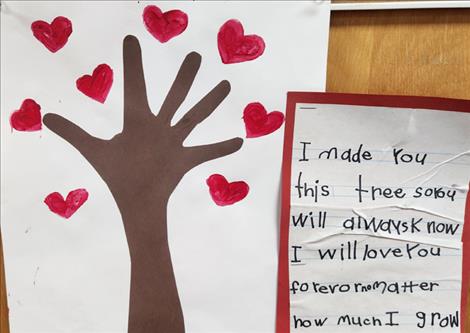 I made You
this tree so you
will always know
I will love You
forevor no matter
how much I grow